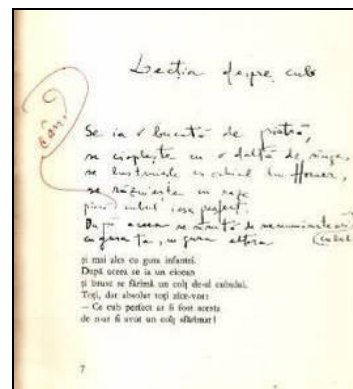 Lecția despre cub
Se ia o bucată de piatră,
se cioplește cu o daltă de sânge,
se lustruiește cu ochiul lui Homer,
se răzuiește cu raze
pînă cubul iese perfect.
După aceea se sărută de nenumărate ori
cu gura ta, cu gura altora
și mai ales cu gura infantei.
După aceea se ia un ciocan
și brusc se fărîmă un colț de-al cubului.
Toți, dar absolut toți zice-vor:
— Ce cub perfect ar fi fost acesta
de n-ar fi avut un colț sfărîmat!
7